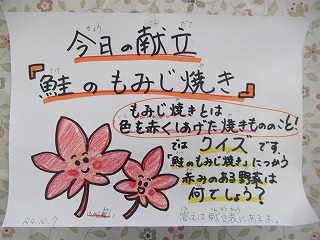 今日の献立
『鮭のもみじ焼き』
もみじ焼きとは
色を赤くしあげた焼きもののこと!
では クイズ です。
「鮭のもみじ焼き」につかう
赤みのある野菜は
何でしょう?
答えは献立表にあるよ。
R4.10.7